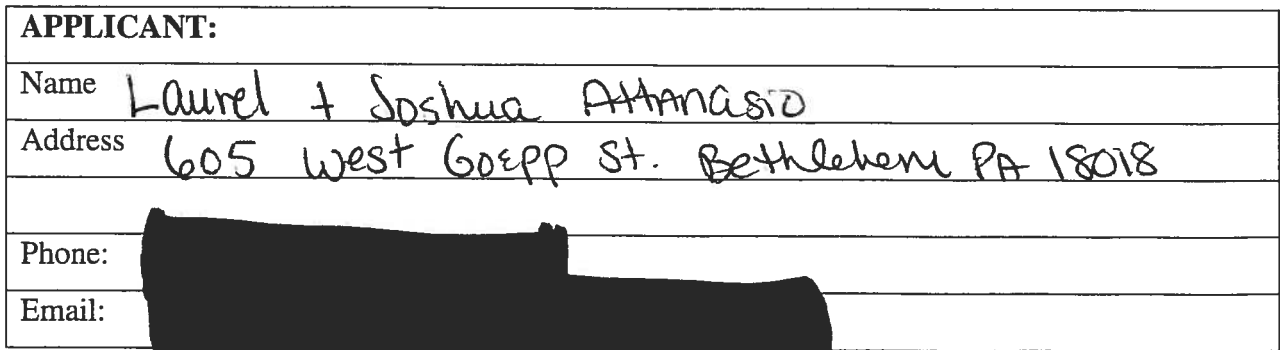 APPLICANT:
Name Laurel + Joshua Attanasio
Address 605 West Goepp St. Bethlehem PA 18018
Phone:
Email: